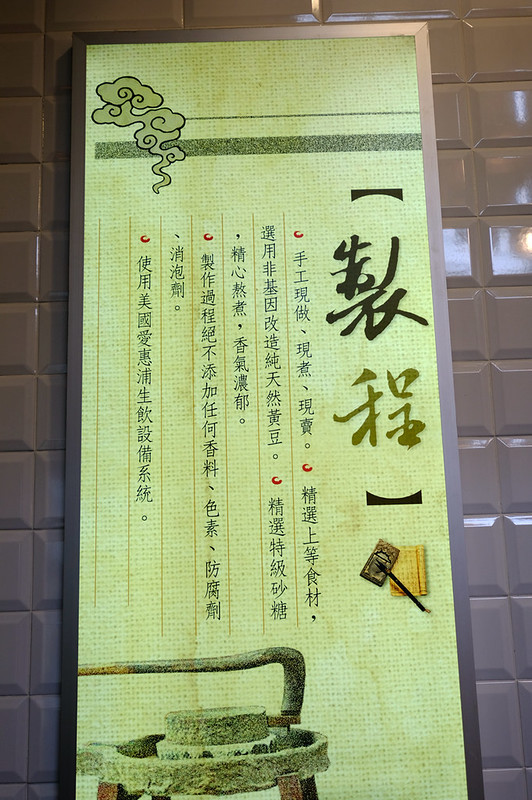 【製程】
手工現做、現煮、現賣。精選上等食材，
選用非基因改造純天然黃豆。精選特級砂糖
，精心熬煮，香氣濃郁。
製作過程絕不添加任何香料、色素、防腐劑
、消泡劑。
使用美國愛惠浦生飲設備系統。